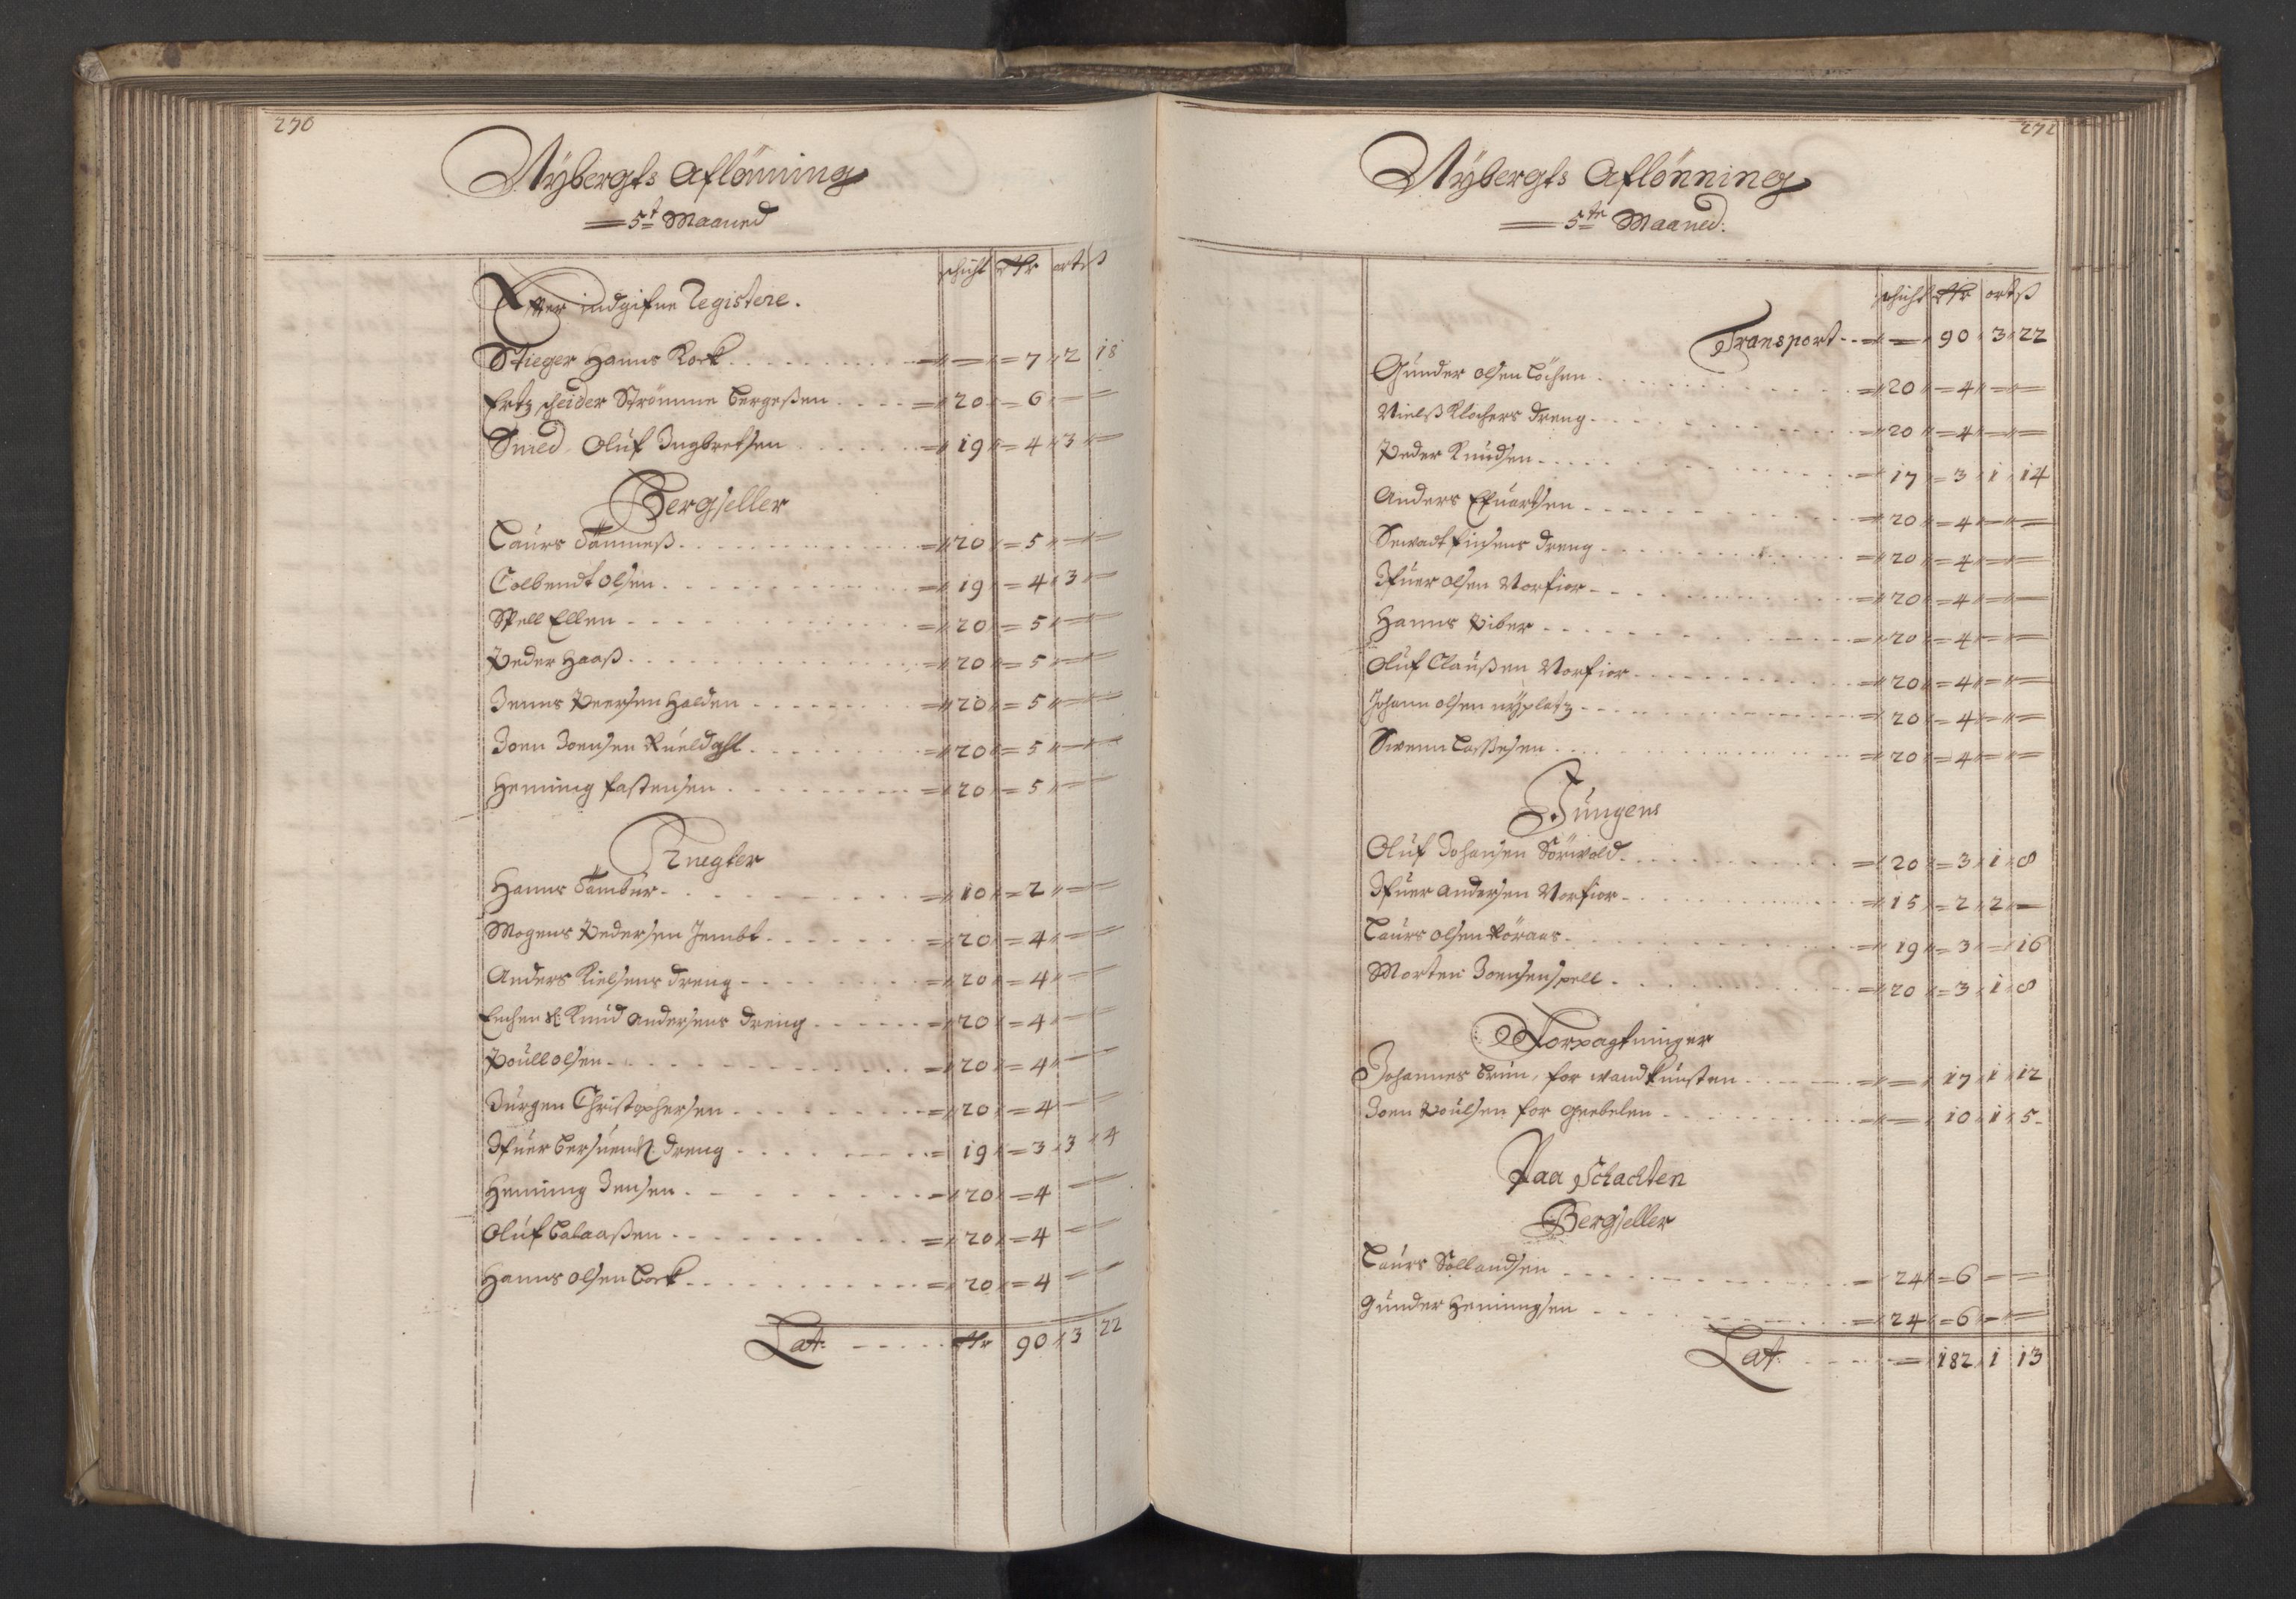 270
Nÿbergts Aflönning
5t Maaned
schicht Rdr ort ß
Effter indgifne Registere.
Stieger Hanns Kock - 7 2 18
Ertzscheider Strömme Bergeßen 20 6 - -
Smed Oluf Ingbretsen 19 4 3 -
Bergseller
Laurs Tönneß 20 5 - -
Colbendt Olsen 19 4 3 -
Spell Ellen 20 5 - -
Peder Haaß 20 5 - -
Jenns Peersen Halden 20 5 - -
Joen Joensen Rueldahl 20 5 - -
Heming Fastensen 20 5 - -
Knegter
Hanns Tambur 10 2 - -
Mogens Pedersen Jembt 20 4 - -
Anders Nielsens dreng 20 4 - -
Enchen Sl: Knud Andersens dreng 20 4 - -
Poull Olsen 20 4 - -
Jürgen Christophersen 20 4 - -
Ifuer dreng 19 3 3 4
Heming Jensen 20 4 - -
Oluf Calaaßen 20 4 - -
Hanns Olsen Cock 20 4 - -
Lat: Rdr 90 3 22
271
Nÿbergts Aflönning
5te Maaned:
schicht Rdr ort ß
Transport - 90 3 22
Gunder Olsen Löchen 20 4 - -
Nielß Klochers dreng 20 4 - -
Peder Knudsen 17 3 1 14
Anders Efuartsen 20 4 - -
Sivadt Finsens dreng 20 4 - -
Ifuer Olsen Norfior 20 4 - -
Hanns Piber 20 4 - -
Oluf Claußen Norfior 20 4 - -
Johann Olsen nÿplatz 20 4 - -
Swenn Laßesen 20 4 - -
Jungens
Oluf Johansen Sörwold 20 3 1 8
Ifuer Andersen Norfior 15 2 2 -
Laurs Olsen Röraas 19 3 - 16
Morten Joensen Spell 20 3 1 8
Forpagtninger
Johannes Brun, for wandkunsten - 17 1 12
Joen Poulsen for geebelen - 10 1 5
Paa Schachten
Bergseller
Laurs Sollandsen 24 6 - -
Gunder Hemingsen 24 6 - -
Lat: - 182 1 13